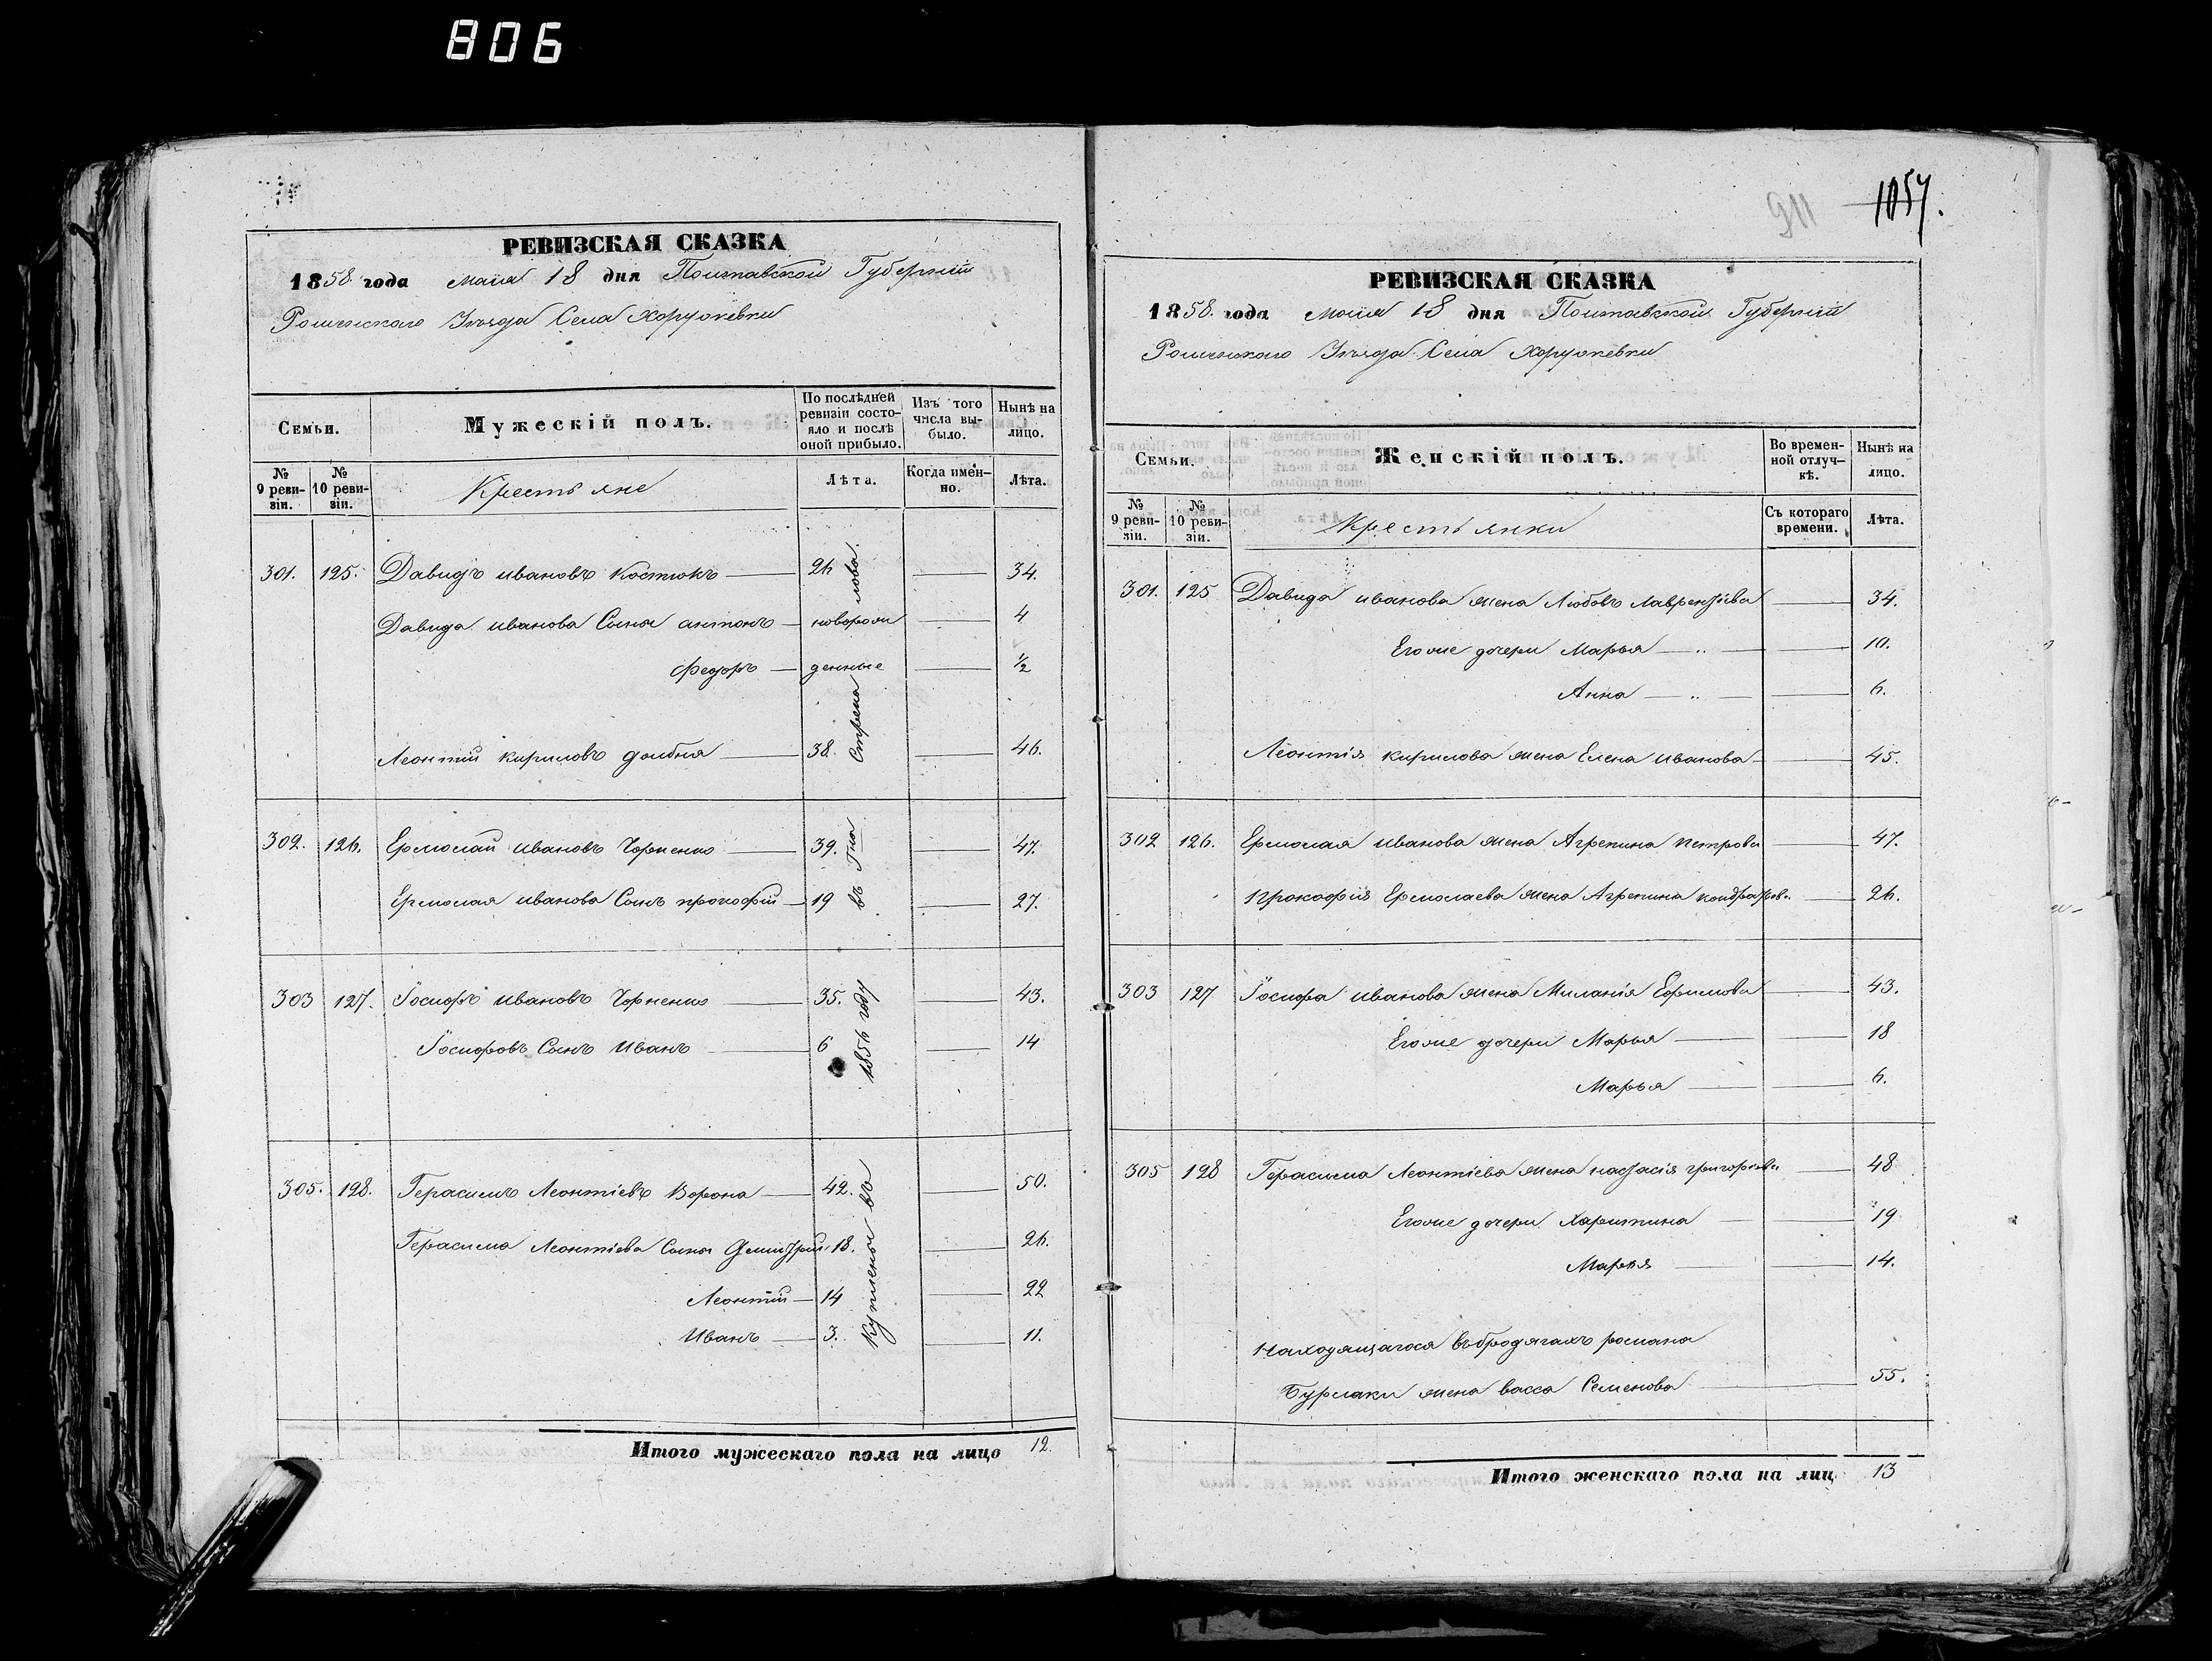 806
РЕВИЗСКАЯ СКАЗКА
1858. года маия 18 дня Полтавской Губерніи
Роменскаго Уѣзда Села Хоружевки
Семьи.
Мужескій полъ.
По послѣдней ревизіи состояло и послѣ оной прибыло.
Изъ того числа выбыло.
Нынѣ на лицо.
№ 9 ревизіи.
№ 10 ревизіи.
Крестьяне
Лѣта.
Когда именно.
Лѣта.
301. 125. Давидъ ивановъ Костюкъ 26 34.
Давида иванова Сыны антонъ новорож 4
Федоръ денные 1/2
Леонтій кириловъ долбня 38. 46.
302. 126. Ермолай ивановъ Чорненко 39. 47.
Ермолая иванова Сынъ прокофій 19 27.
303 127. Іосифъ ивановъ Чорненко 35. 43.
Іосифовъ Сынъ Иванъ 6 14
305. 128. Герасимъ Леонтіевъ Ворона 42. 50.
Герасима Леонтіева Сыны Дмитрій 18. 26.
Леонтій 14 22
Иванъ 3. 11.
Куплены во
1856 году
въ Гна
Итого мужескаго пола на лицо 12.
911 1057.
РЕВИЗСКАЯ СКАЗКА
1858. года маия 18 дня Полтавской Губерніи
Роменскаго Уѣзда Села Хоружевки
Семьи.
Женскій полъ.
Во временной отлучкѣ.
Нынѣ на лицо.
№ 9 ревизіи.
№ 10 ревизіи.
Крестьянки
Съ котораго времени.
Лѣта.
301. 125 Давида иванова жена Любовь Лаврентіева 34.
Егоже дочери Марья 10.
Анна 6.
Леонтія кирилова жена Елена иванова 45.
302 126. Ермолая иванова жена Агрепина петрова 47.
Прокофія Ермолаева жена Агрепина кондратьев. 26.
303 127 Іосифа иванова жена Миланія Ефимова 43.
Егоже дочери Марья 18
Марья 6.
305 128 Герасима Леонтіева жена настасія григорьева 48
Егоже дочери Харитина 19
Марья 14.
Находящагося въбродягахъ романа
Бурлаки жена васса Семенова 55.
Итого женскаго пола на лиц 13